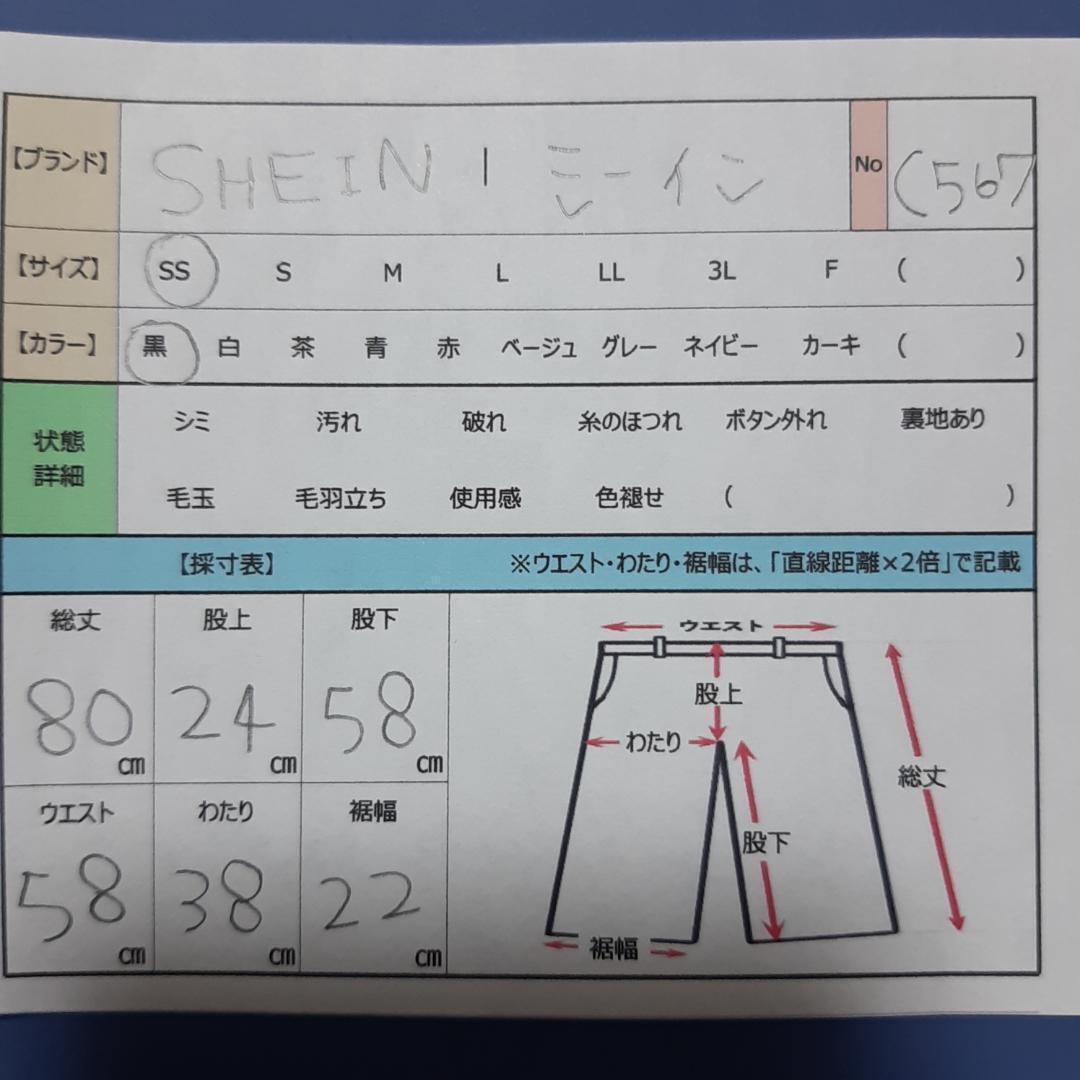 【ブランド】 SHEIN | シーイン No (567
【サイズ】 SS S M L LL 3L F ( )
【カラー】 黒 白 茶 青 赤 ベージュ グレー ネイビー カーキ ( )
状態
詳細
シミ 汚れ 破れ 糸のほつれ ボタン外れ 裏地あり
毛玉 毛羽立ち 使用感 色褪せ ( )
【採寸表】 ※ウエスト・わたり・裾幅は、「直線距離×2倍」で記載
総丈 股上 股下
80cm 24cm 58cm
ウエスト わたり 裾幅
58cm 38cm 22cm
ウエスト
股上
わたり
総丈
股下
裾幅